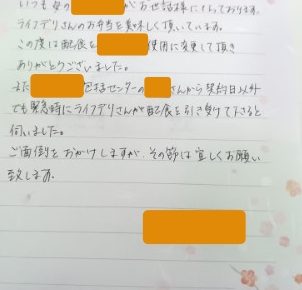 いつも母の がお世話様になっております。
ライフデリさんのお弁当を美味しく頂いています。
この度は配食を 使用に変更して頂き
ありがとうございました。
また 包括センターの さんから契約日以外
でも緊急時にライフデリさんが配食を引き受けて下さると
伺いました。
ご面倒をおかけしますが、その節は宜しくお願い
致します。